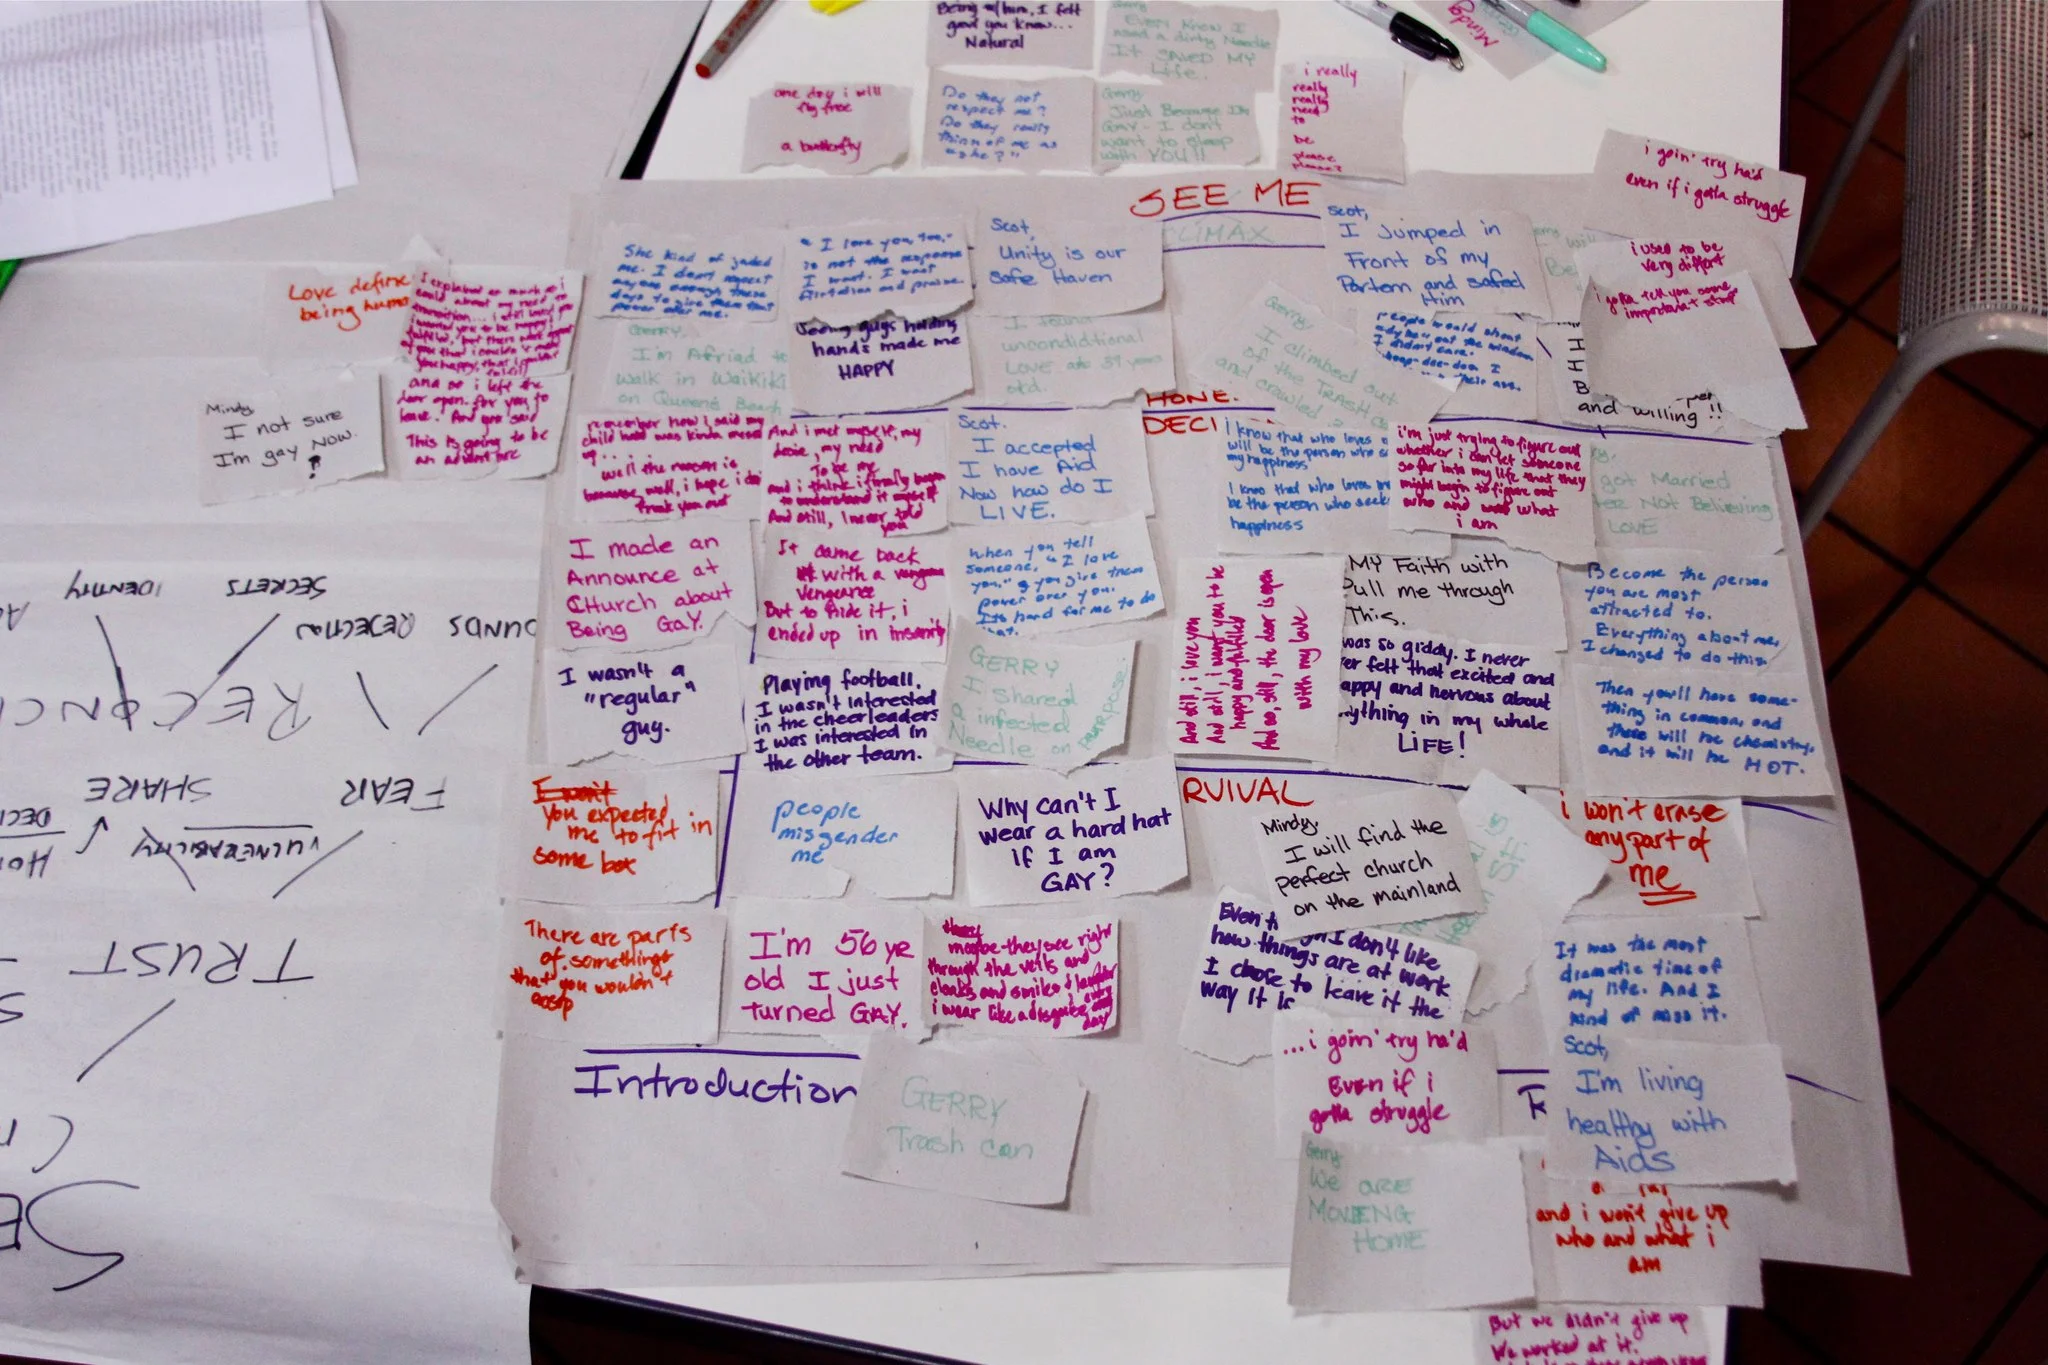 Being w/him, I felt
good you know...
Natural
Every know I
used a dirty Needle
It SAVED MY
Life.
Mindy
one day i will
fly free
a butterfly
Do they not
respect me?
Do they really
think of me as
"she?"
Gerry
Just Because I'm
GAY - I don't
want to sleep
with YOU!!
i really
really
really
need
to
be
please
please?
i goin' try ha'd
even if i gotta struggle
SEE ME
CLIMAX
i used to be
very differt
i gotta tell you some
important stuff
Love define
being huma
I explained as much as i
could about my need to
transition... i still loved you
i wanted you to be happy
fulfilled, but there were parts
of you that i couldn't make
you happy, that i
fulfill
and so i left the
door open. for you to
leave. And you said
This is going to be
an adventure
Mindy,
I not sure
I'm gay NOW.
?
She kind of jaded
me. I don't respect
anyone enough, these
days to give them that
power over me.
"I love you, too,"
is not the response
I want. I want
flirtation and praise.
Scot,
Unity is our
safe Haven
Scot,
I Jumped in
Front of my
Partem and safed
Him
Gerry,
I'm Afriad to
walk in Waikiki
on Queens Beach
Seeing guys holding
hands made me
HAPPY
I found
uncondidtional
LOVE at 39 years
old.
Gerry,
I climbed out
of the TRASH C
and crawled
people would shout
out the window
I didn't care.
and willing!!
HONE.
DECI
remember how i said my
child hood was kinda messed
up...
well the reason is
because, well, i hope i do
freak you out
And i met myself, my
desire, my need
To be me
and i think i finally began
to understand it myself
And still, I never told
you
Scot.
I accepted
I have Aid
Now how do I
LIVE.
I know that who loves
will be the person who s
my happiness
I know that who loves m
be the person who seek
happiness
i'm just trying to figure out
whether i can let someone
so far into my life that they
might begin to figure out
who and what
i am
got Married
Not Believing
LOVE
I made an
Announce at
CHurch about
Being GAY.
It came back
with a
vengeance
But to hide it, i
ended up in insanity
When you tell
someone, "I love
you," you give them
power over you.
Its hard for me to do
that.
And still, i love you
And still, i want you to be
happy and fulfilled
And so, still, the door is open
with my love
MY Faith with
Pull me through
This.
Become the person
you are most
attracted to.
Everything about me,
I changed to do this
I wasn't a
"regular"
guy.
Playing football,
I wasn't interested
in the cheerleaders
I was interested in
the other team.
GERRY
I shared
a infected
Needle on purpose.
was so giddy. I never
er felt that excited and
appy and nervous about
ything in my whole
LIFE!
Then you'll have some-
thing in common, and
there will be chemistry,
and it will be HOT.
IDENTITY
SECRETS
REJECTION
OUNDS
RECONCI
SHARE
FEAR
VULNERABILITY
DECI
HO
TRUST
You expected
me to fit in
some box
people
misgender
me
Why can't I
wear a hard hat
if I am
GAY?
RVIVAL
Mindy,
I will find the
perfect church
on the mainland
i won't erase
any part of
me
There are parts
of somethings
that you wouldn't
I'm 56 yr
old I just
turned GAY.
maybe they see right
through the veils and
cloaks and smiles & laughter
i wear like a disguise every
day
Even
I don't like
how things are at work
I chose to leave it the
way it is
It was the most
dramatic time of
my life. And I
kind of miss it.
Introduction
GERRY
Trash can
...i goin' try ha'd
Even if i
gotta struggle
Scot,
I'm living
healthy with
Aids
Gerry
We ARE
MOVEING
HOME
and i won't give up
who and what i
am
But we didn't give up
We worked at it.